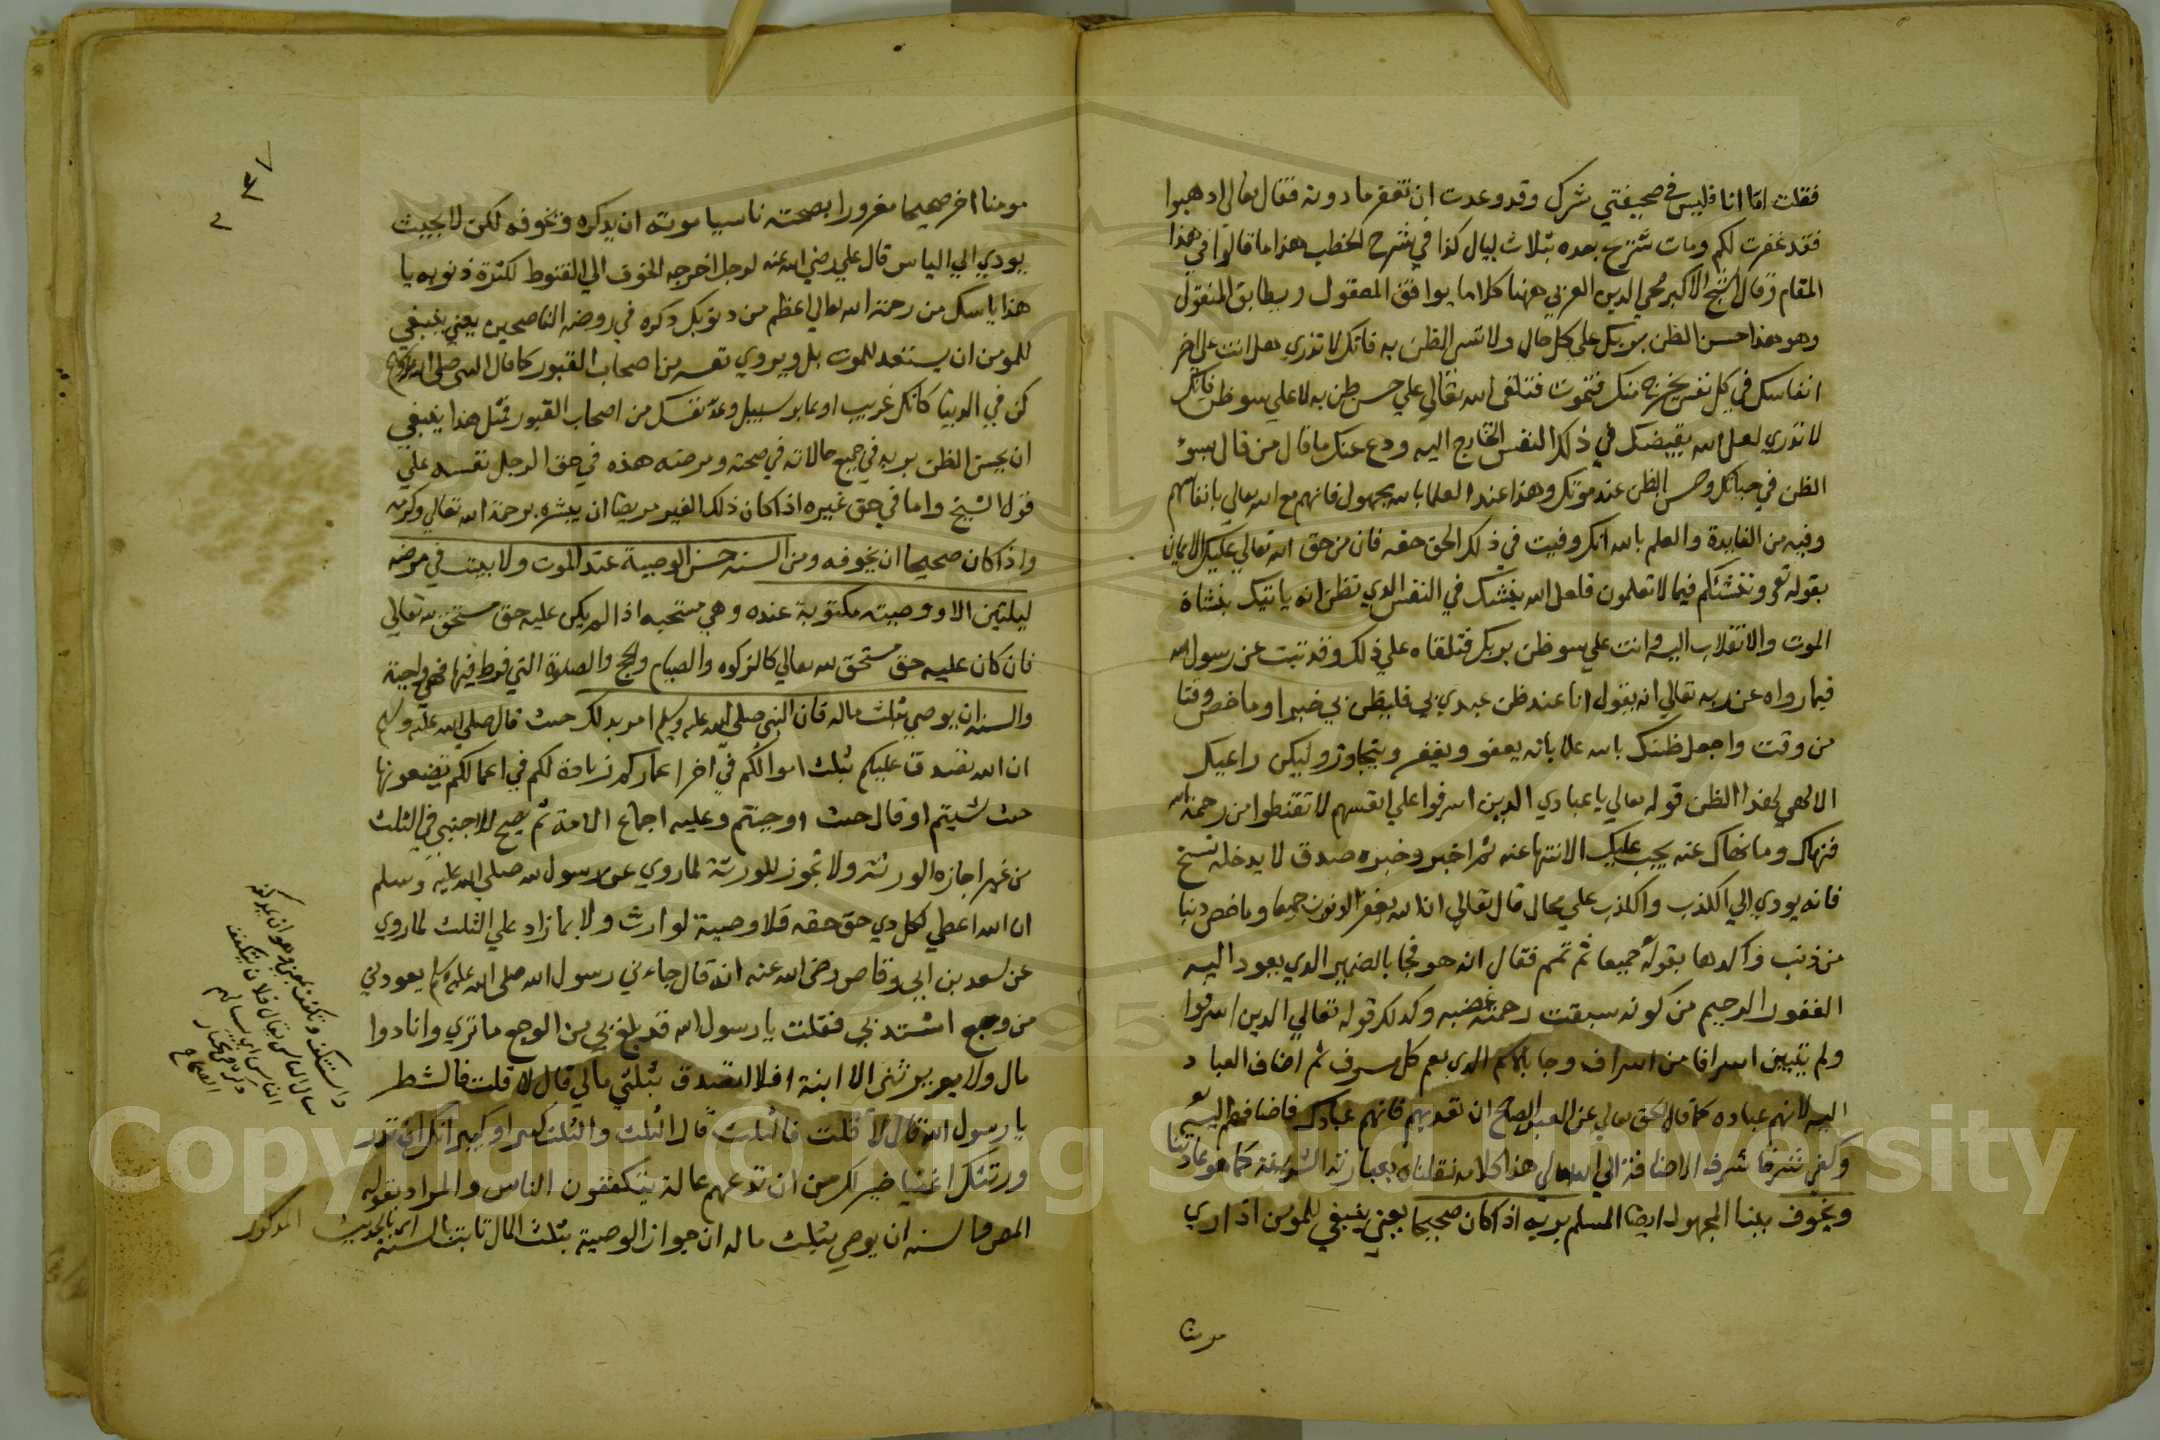 فقلت اما انا فليس في صحيفتي شرك وقد وعدت ان تغفر ما دونه فقال تعالى اذهبوا
فقد غفرت لكم ومات شريح بعده بثلاث ليال كذا في شرح الخطب هذا ما قالوا في هذا
المقام وقال الشيخ الاكبر محي الدين العربي ههنا كلاما يوافق المعقول ويطابق المنقول
وهو هذا حسن الظن بربك علي كل حال ولا تسي الظن به فانك لا تدري هل انت علي اخر
انفاسك في كل نفس يخرج منك فتموت فتلقى الله تعالي علي حسن ظن به لا علي سوظن فانك
لا تدري لعل الله يقبضك في ذلك النفس الخارج اليه ودع عنك ما قال من قال بسؤ
الظن في حياتك وحسن الظن عند موتك وهذا عند العلما بالله مجهول فانهم مع الله تعالي بانفاسهم
وفيه من الفايدة والعلم بالله انك وفيت في ذلك الحق حقه فان من حق الله تعالي عليك الايمان
بقوله تع وننشئكم فيما لا تعلمون فلعل الله ينشئك في النفس الذي تظن انه ياتيك بنشاة
الموت والانقلاب اليه وانت علي سوظن بربك فتلقاه علي ذلك وقد ثبت عن رسول الله
فيما رواه عن ربه تعالي انه يقول انا عند ظن عبدي بي فليظن بي خيرا وما خص وقتا
من وقت واجعل ظنك بالله علما بانه يعفو ويغفر ويتجاوز وليكن داعيك
الالهي لهذا الظن قوله تعالي يا عبادي الذين اسرفوا علي انفسهم لا تقنطوا من رحمة الله
فنهاك وما نهاك عنه يجب عليك الانتها عنه ثم اخبر وخبره صدق لا يدخله نسخ
فانه يودي الي الكذب والكذب علي محال قال تعالي ان الله يغفر الذنوب جميعا وما خص ذنبا
من ذنب واكدها بقوله جميعا ثم تمم فقال انه هو فجا بالضمير الذي يعود اليه
الغفور الرحيم من كونه سبقت رحمته غضبه وكذلك قوله تعالي الذين اسرفوا
ولم يتبين اسرافا من اسراف وجا بالاسم الذي يعم كل مسرف ثم اضاف العباد
اليه لانهم عباده كما قال الحق تعالي عن العبد الصالح ان تعذبهم فانهم عبادك فاضافهم اليه تع
وكفي شرفا شرف الاضافة الي الله تعالي هذا كلامه نقلناه بعبارته الشريفة كما هو عادتنا
ويخوف ببنا المجهول ايضا المسلم بربه اذا كان صحيحا يعني ينبغي للمومن اذا راي
مومنا
مومنا اخر صحيحا مغرورا بصحته ناسيا موته ان يذكره ويخوفه لكن لا بحيث
يودي الي الياس قال علي رضي الله عنه لرجل اخرجه الخوف الي القنوط لكثرة ذنوبه يا
هذا ياسك من رحمة الله تعالي اعظم من ذنوبك ذكره في روضة الناصحين يعني ينبغي
للمومن ان يستعد للموت بل ويروي نفسه من اصحاب القبور كما قال النبي صلي الله عليه وسلم
كن في الدنيا كانك غريب او عابر سبيل وعد نفسك من اصحاب القبور قيل هذا ينبغي
ان يحسن الظن بربه في جميع حالاته في صحته ومرضه هذه في حق الرجل نفسه علي
قول الشيخ واما في حق غيره اذا كان ذلك الغير مريضا ان يبشره برحمة الله تعالي وكرمه
واذا كان صحيحا ان يخوفه ومن السنه حسن الوصية عند الموت ولا يبيت في مرضه
ليلتين الا ووصيته مكتوبة عنده وهي مستحبه اذا لم يكن عليه حق مستحق لله تعالي
فان كان عليه حق مستحق لله تعالي كالزكوه والصيام والحج والصلوة التي فرط فيها فهي واجبة
والسنه ان يوصي بثلث ماله فان النبي صلي الله عليه وسلم امر بذلك حيث قال صلي الله عليه وسلم
ان الله تصدق عليكم بثلث اموالكم في اخر اعماركم زيادة لكم في اعمالكم تضعونها
حيث شيتم او قال حيث اوجبتم وعليه اجماع الامة ثم يصح للاجنبي في الثلث
من غير اجازه الورثه ولا تجوز للورثة لما روي عن رسول الله صلي الله عليه وسلم
ان الله اعطي كل ذي حق حقه فلا وصية لوارث ولا بما زاد علي الثلث لما روي
عن سعد بن ابي وقاص رضي الله عنه انه قال جاءني رسول الله صلي الله عليه وسلم يعودني
من وجع اشتد بي فقلت يا رسول الله قد بلغ بي من الوجع ما تري وانا ذوا
مال ولا يرثني الا ابنة افلا اتصدق بثلثي مالي قال لا قلت فالشطر
يا رسول الله قال لا قلت فالثلث قال الثلث والثلث كثير او كبير انك ان تذر
ورثتك اغنيا خير لك من ان تدعهم عالة يتكففون الناس والمراد بقوله
المص والسنه ان يوصي بثلث ماله ان جواز الوصية بثلث المال ثابت بالسنة اي بالحديث المذكور
واستكف وتكفف بمعني وهو ان يمد كفه
يسال الناس يقال فلان يتكفف
الناس اي يسالهم
ذكره في مختار
الصحاح